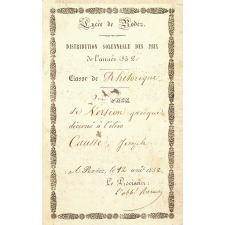 Lycée de Rodez.
DISTRIBUTION SOLENNELLE DES PRIX
de l'année 1852.
Classe de Rhétorique.
PRIX
de Version grecque
décerné à l'élève
Causse Joseph
A Rodez, le 12 août 1852.
Le Proviseur,